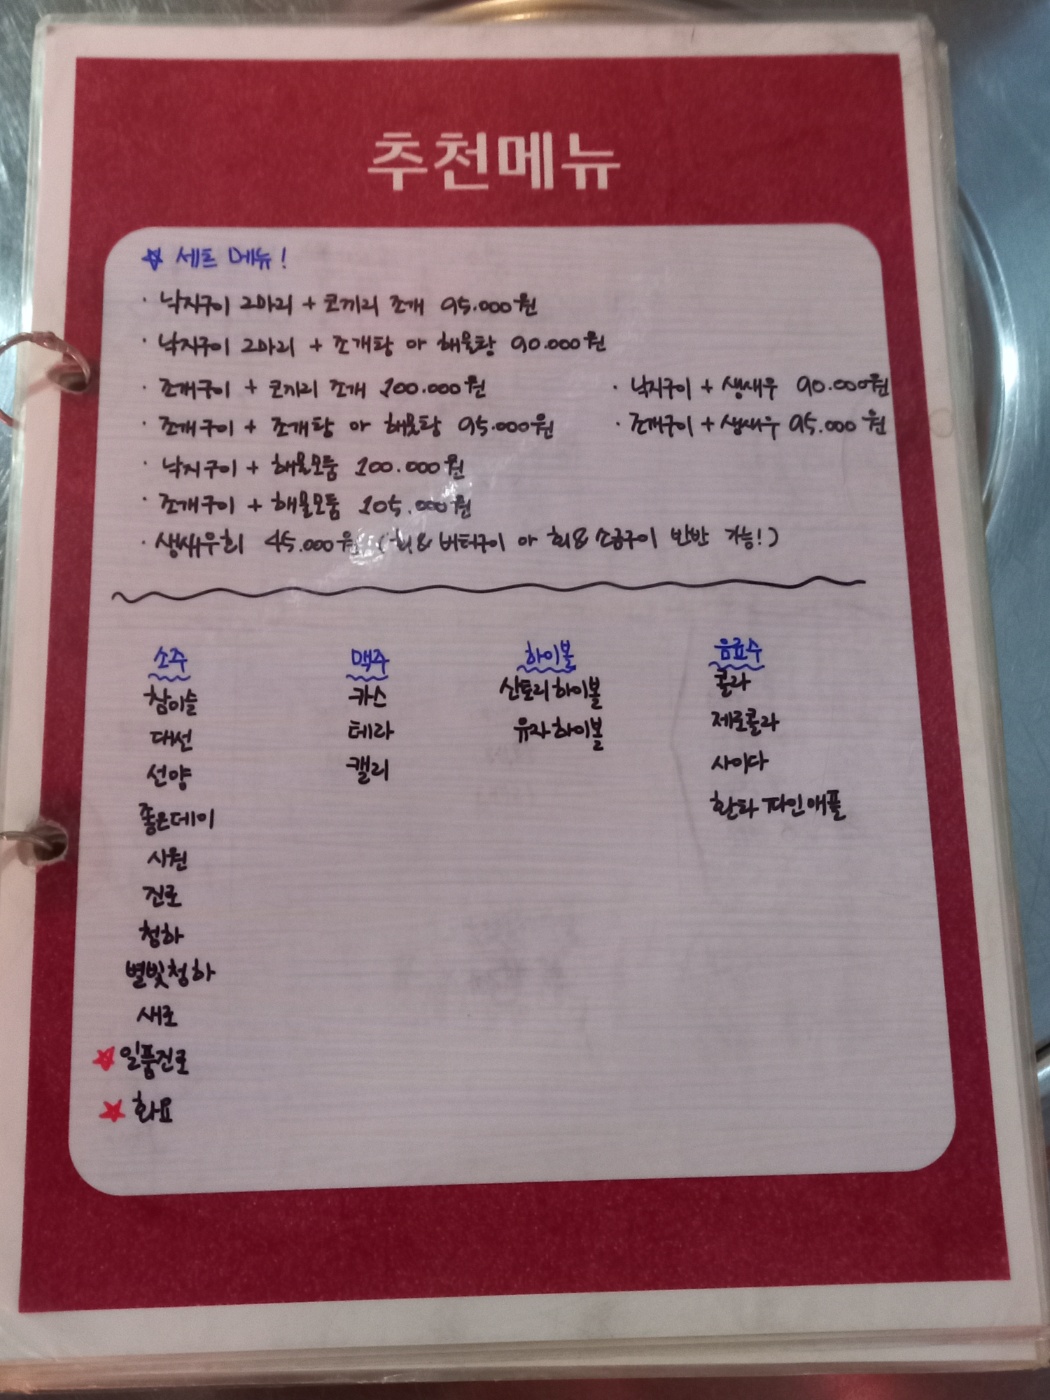 추천메뉴
☆ 세트 메뉴!
· 낙지구이 2마리 + 코끼리 조개 95.000원
· 낙지구이 2마리 + 조개탕 or 해물탕 90.000원
· 조개구이 + 코끼리 조개 100.000원
· 낙지구이 + 생새우 90.000원
· 조개구이 + 조개탕 or 해물탕 95.000원
· 조개구이 + 생새우 95.000원
· 낙지구이 + 해물모둠 100.000원
· 조개구이 + 해물모둠 105.000원
· 생새우회 45.000원 (회& 버터구이 or 회&소금구이 반반 가능!)
소주
참이슬
대선
선양
좋은데이
시원
진로
청하
별빛청하
새로
☆ 일품진로
☆ 화요
맥주
카스
테라
캘리
하이볼
산토리하이볼
유자하이볼
음료수
콜라
제로콜라
사이다
환타 파인애플